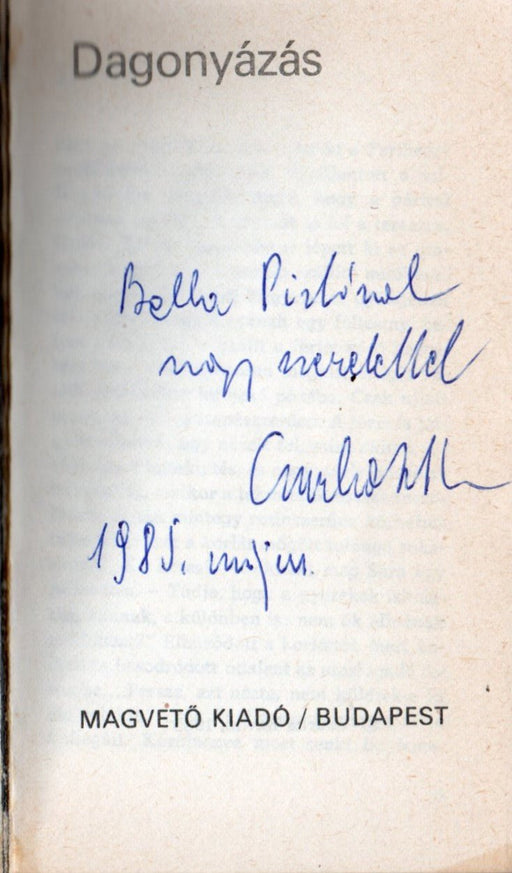 Dagonyázás
Bella Pistának
nagy szeretettel
1985. máj.
MAGVETŐ KIADÓ / BUDAPEST